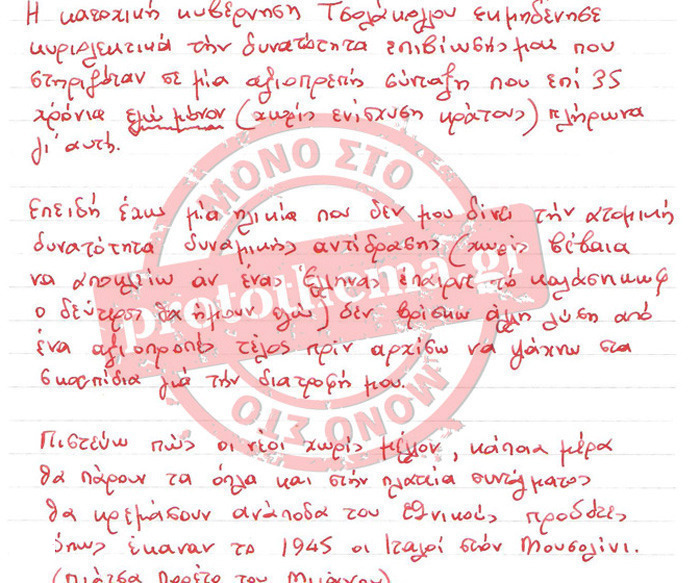 Η κατοχική κυβέρνηση Τσολάκογλου εκμηδένησε
κυριολεκτικά την δυνατότητα επιβίωσής μου που
στηριζόταν σε μία αξιοπρεπή σύνταξη που επί 35
χρόνια εγώ μόνον (χωρίς ενίσχυση κράτους) πλήρωνα
γι' αυτή.
Επειδή έχω μία ηλικία που δεν μου δίνει την ατομική
δυνατότητα δυναμικής αντίδρασης (χωρίς βέβαια
να αποκλείω αν ένας Έλληνας έπαιρνε το καλάσνικωφ
ο δεύτερος θα ήμουν εγώ) δεν βρίσκω άλλη λύση από
ένα αξιοπρεπές τέλος πριν αρχίσω να ψάχνω στα
σκουπίδια για την διατροφή μου.
Πιστεύω πως οι νέοι χωρίς μέλλον, κάποια μέρα
θα πάρουν τα όπλα και στην πλατεία συντάγματος
θα κρεμάσουν ανάποδα τους εθνικούς προδότες
όπως έκαναν το 1945 οι Ιταλοί στον Μουσολίνι.
(πιάτσα Λορέτο του Μιλάνου)
ΜΟΝΟ ΣΤΟ
protothema.gr
ΜΟΝΟ ΣΤΟ